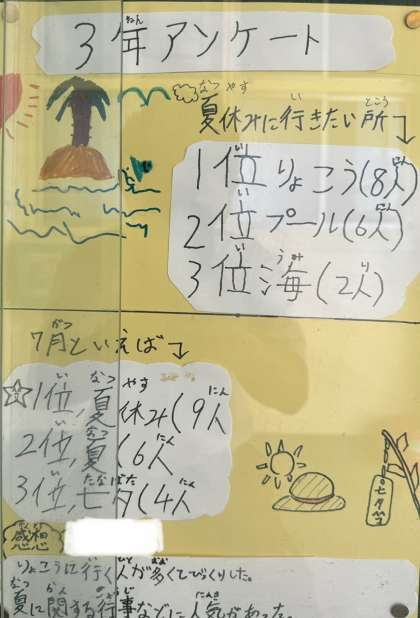 3年アンケート
夏休みに行きたい所
1位 りょこう(8人)
2位 プール(6人)
3位 海(2人)
7月といえば
1位,夏休み(9人
2位,夏(6人
3位,七夕(4人
感想
りょこうに行く人が多くてびっくりした。
夏に関する行事などに人気があった。